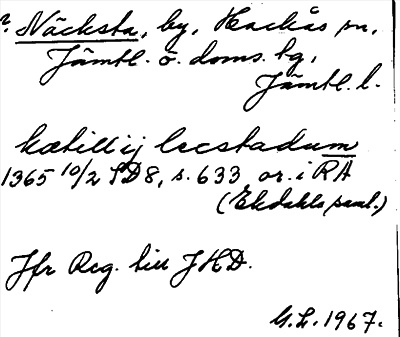 ? Näcksta, by, Hackås sn,
Jämtl. ö. doms. tg,
Jämtl. l.
kætill ij lecstadum
1365 10/2 SD8, s. 633 or. i RA
(Ekdahls saml.)
Jfr Reg. till JHD.
G.L. 1967.